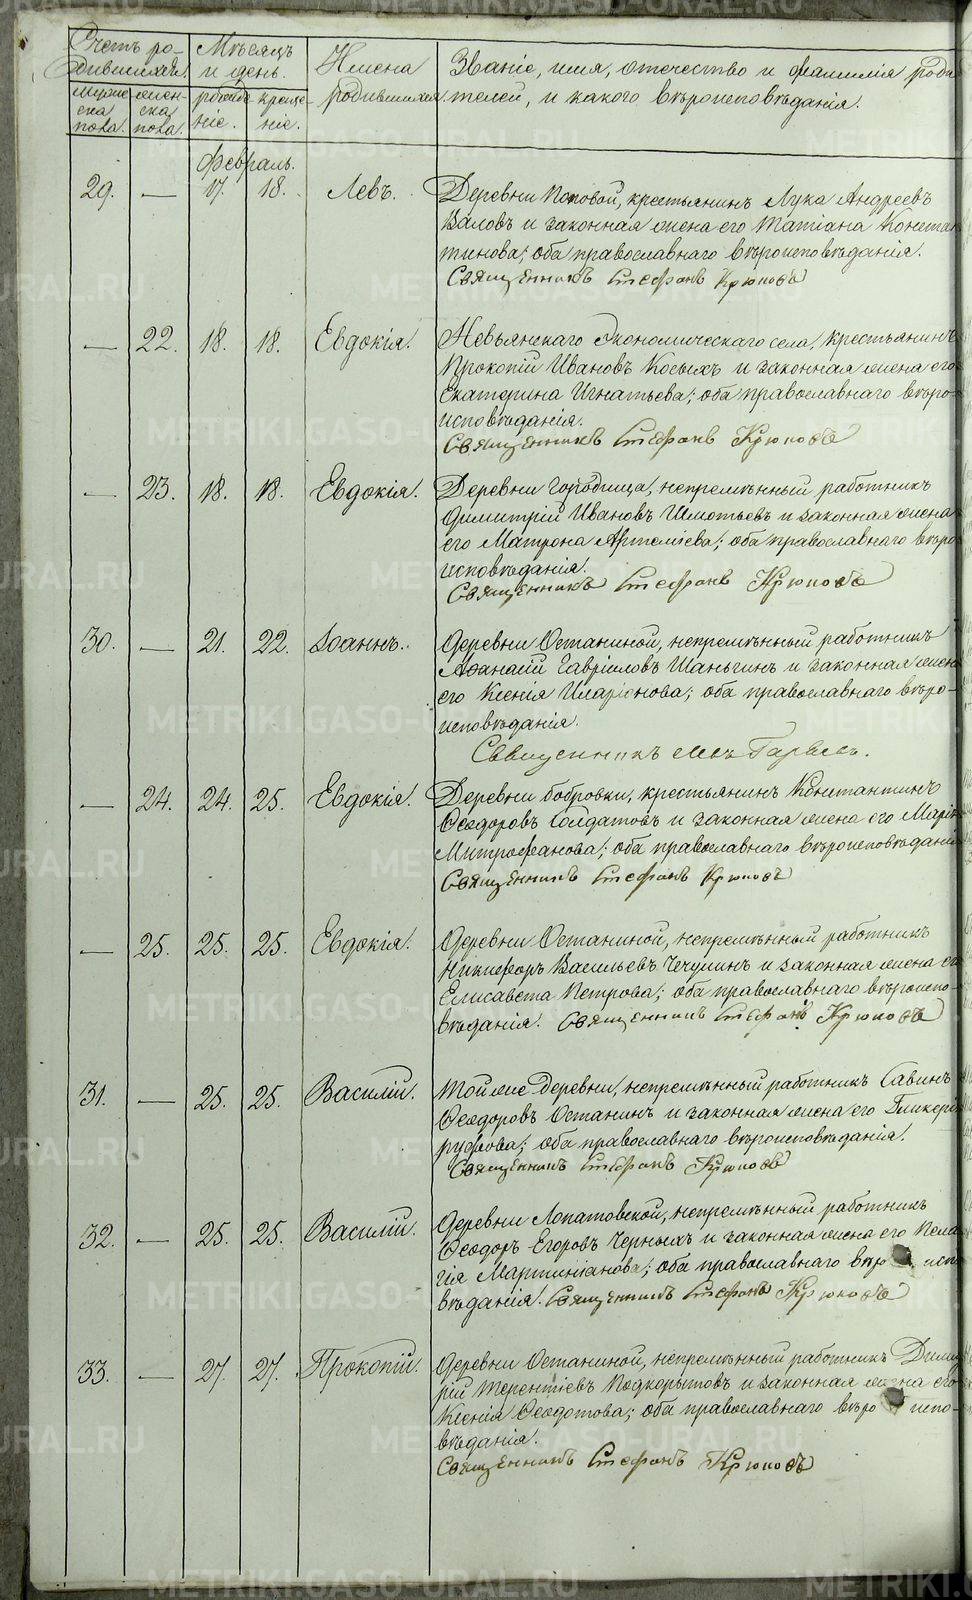 Счетъ ро-
дившихся.
Мѣсяцъ
и день.
Имена
родившихся.
Званіе, имя, отчество и фамилія роди-
телей, и какого вѣроисповѣданія.
мужес-
ска
пола.
жен-
ска
пола.
рожде
ніе.
креще-
ніе.
Февраль.
29. — 17. 18. Левъ.
Деревни Поповой, крестьянинъ Лука Андреевъ
Валовъ и законная жена его Татіана Констан
тинова; оба православнаго вѣроисповѣданія.
Священникъ Стефанъ Крюковъ
— 22. 18. 18. Евдокія.
Невьянскаго экономическаго села, крестьянинъ
Прокопій Ивановъ Косыхъ и законная жена его
Екатерина Игнатьева; оба православнаго вѣро-
исповѣданія.
Священникъ Стефанъ Крюковъ
— 23. 18. 18. Евдокія.
Деревни Городища, непремѣнный работникъ
Димитрій Ивановъ Шмотьевъ и законная жена
его Матрона Артеміева; оба православнаго вѣро
исповѣданія.
Священникъ Стефанъ Крюковъ
30. — 21. 22. Іоаннъ.
Деревни Останиной, непремѣнный работникъ
Афанасій Гавріиловъ Шаньгинъ и законная жена
его Ксенія Иларіонова; оба православнаго вѣро-
исповѣданія.
Священникъ
— 24. 24. 25. Евдокія.
Деревни Бобровки, крестьянинъ Константинъ
Ѳеодоровъ Солдатовъ и законная жена его Марія
Митрофанова; оба православнаго вѣроисповѣданія
Священникъ Стефанъ Крюковъ
— 25. 25. 25. Евдокія.
Деревни Останиной, непремѣнный работникъ
Никифоръ Васильевъ Чечулинъ и законная жена ег
Елисавета Петрова; оба православнаго вѣроиспо-
вѣданія. Священникъ Стефанъ Крюковъ
31. — 25. 25. Василій.
Тойже деревни, непремѣнный работникъ Савинъ
Ѳеодоровъ Останинъ и законная жена его Гликерія
Руфова; оба православнаго вѣроисповѣданія.
Священникъ Стефанъ Крюковъ
32. — 25. 25. Василій.
Деревни Лопатовской, непремѣнный работникъ
Ѳеодоръ Егоровъ Черныхъ и законная жена его Пела
гія Мартиніанова; оба православнаго вѣро испо
вѣданія. Священникъ Стефанъ Крюковъ
33. — 27. 27. Прокопій.
Деревни Останиной, непремѣнный работникъ Димит
рій Терентіевъ Подкорытовъ и законная жена его
Ксенія Ѳеодотова; оба православнаго вѣро испо-
вѣданія.
Священникъ Стефанъ Крюковъ